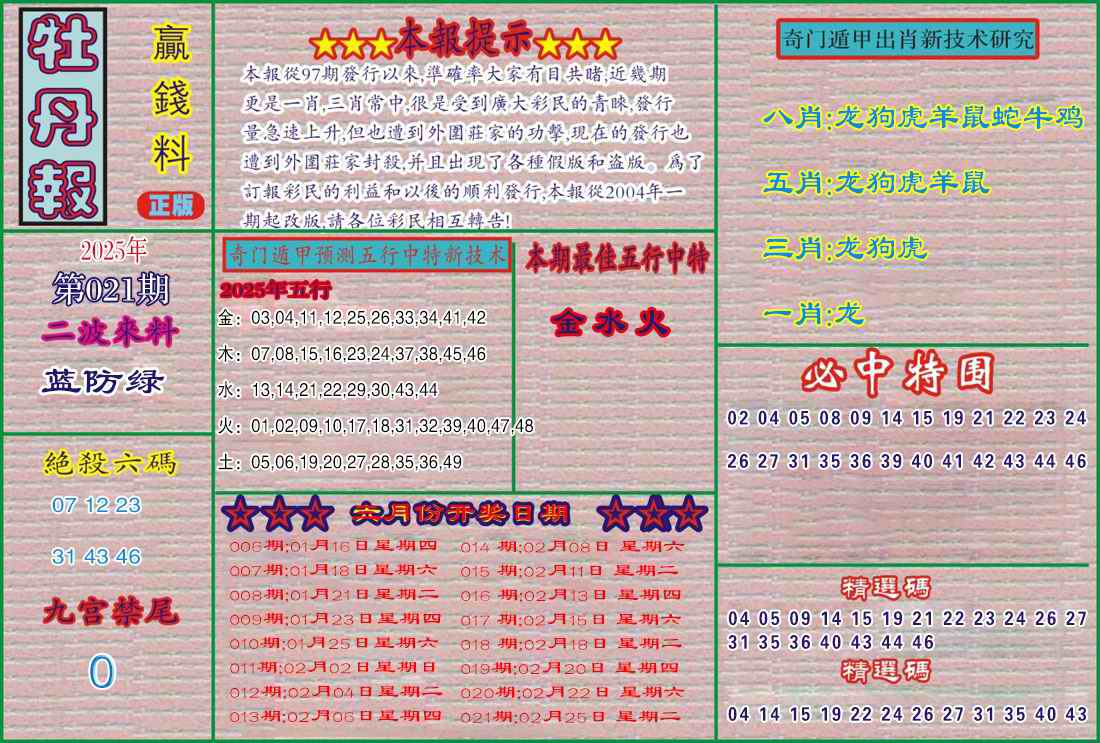 牡丹報
贏錢料
正版
★★★本報提示★★★
本報從97期發行以來,準確率大家有目共睹,近幾期
更是一肖,三肖常中,很是受到廣大彩民的青睞,發行
量急速上升,但也遭到外圍莊家的功擊,現在的發行也
遭到外圍莊家封殺,并且出現了各種假版和盗版。爲了
訂報彩民的利益和以後的順利發行,本報從2004年一
期起改版,請各位彩民相互轉告!
奇门遁甲出肖新技术研究
八肖:龙狗虎羊鼠蛇牛鸡
五肖:龙狗虎羊鼠
三肖:龙狗虎
一肖:龙
2025年
第021期
二波來料
蓝防绿
奇门遁甲预测五行中特新技术
2025年五行
金：03,04,11,12,25,26,33,34,41,42
木：07,08,15,16,23,24,37,38,45,46
水：13,14,21,22,29,30,43,44
火：01,02,09,10,17,18,31,32,39,40,47,48
土：05,06,19,20,27,28,35,36,49
本期最佳五行中特
金水火
必中特围
02 04 05 08 09 14 15 19 21 22 23 24
26 27 31 35 36 39 40 41 42 43 44 46
絕殺六碼
07 12 23
31 43 46
九宫禁尾
0
☆☆☆六月份开奖日期☆☆☆
006期:01月16日星期四 014期:02月08日 星期六
007期:01月18日星期六 015期:02月11日 星期二
008期:01月21日星期二 016期:02月13日 星期四
009期:01月23日星期四 017期:02月15日 星期六
010期:01月25日星期六 018期:02月18日 星期二
011期:02月02日星期日 019期:02月20日 星期四
012期:02月04日星期二 020期:02月22日 星期六
013期:02月06日星期四 021期:02月25日 星期二
精選碼
04 05 09 14 15 19 21 22 23 24 26 27
31 35 36 40 43 44 46
精選碼
04 14 15 19 22 24 26 27 31 35 40 43